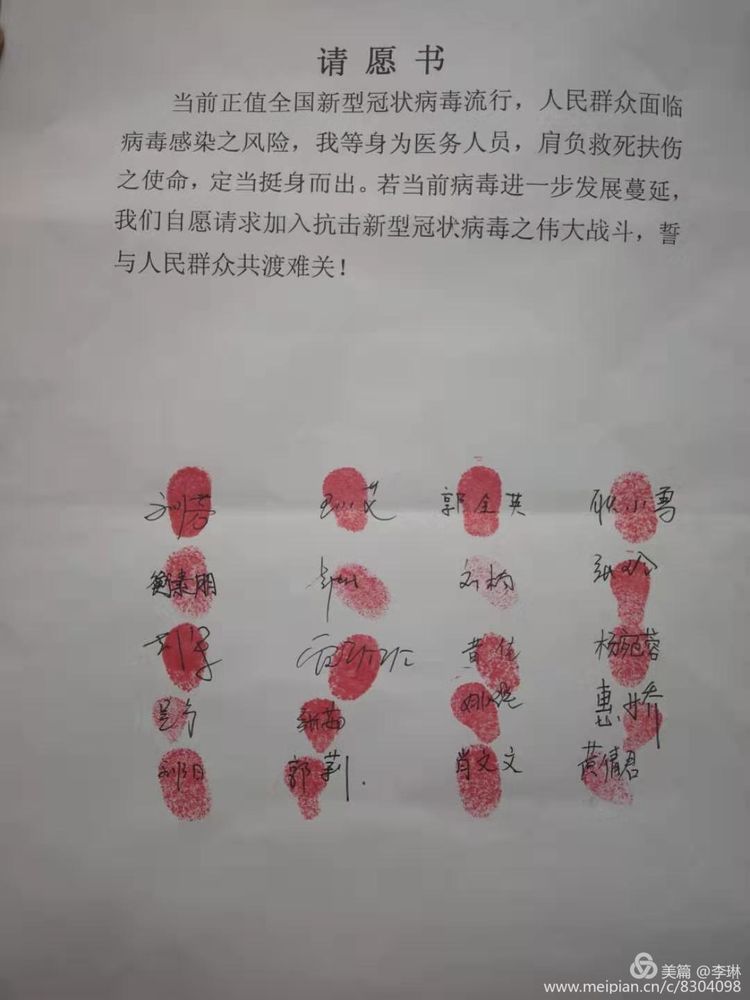 请愿书
当前正值全国新型冠状病毒流行，人民群众面临
病毒感染之风险，我等身为医务人员，肩负救死扶伤
之使命，定当挺身而出。若当前病毒进一步发展蔓延，
我们自愿请求加入抗击新型冠状病毒之伟大战斗，誓
与人民群众共渡难关！
刘芳 郭全英 耿小勇
衡素朋 石杨 张玲
黄佳 杨宛蓉
惠娇
刘阳 郭莉. 肖文文 黄倩君
美篇 @李琳
www.meipian.cn/c/8304098